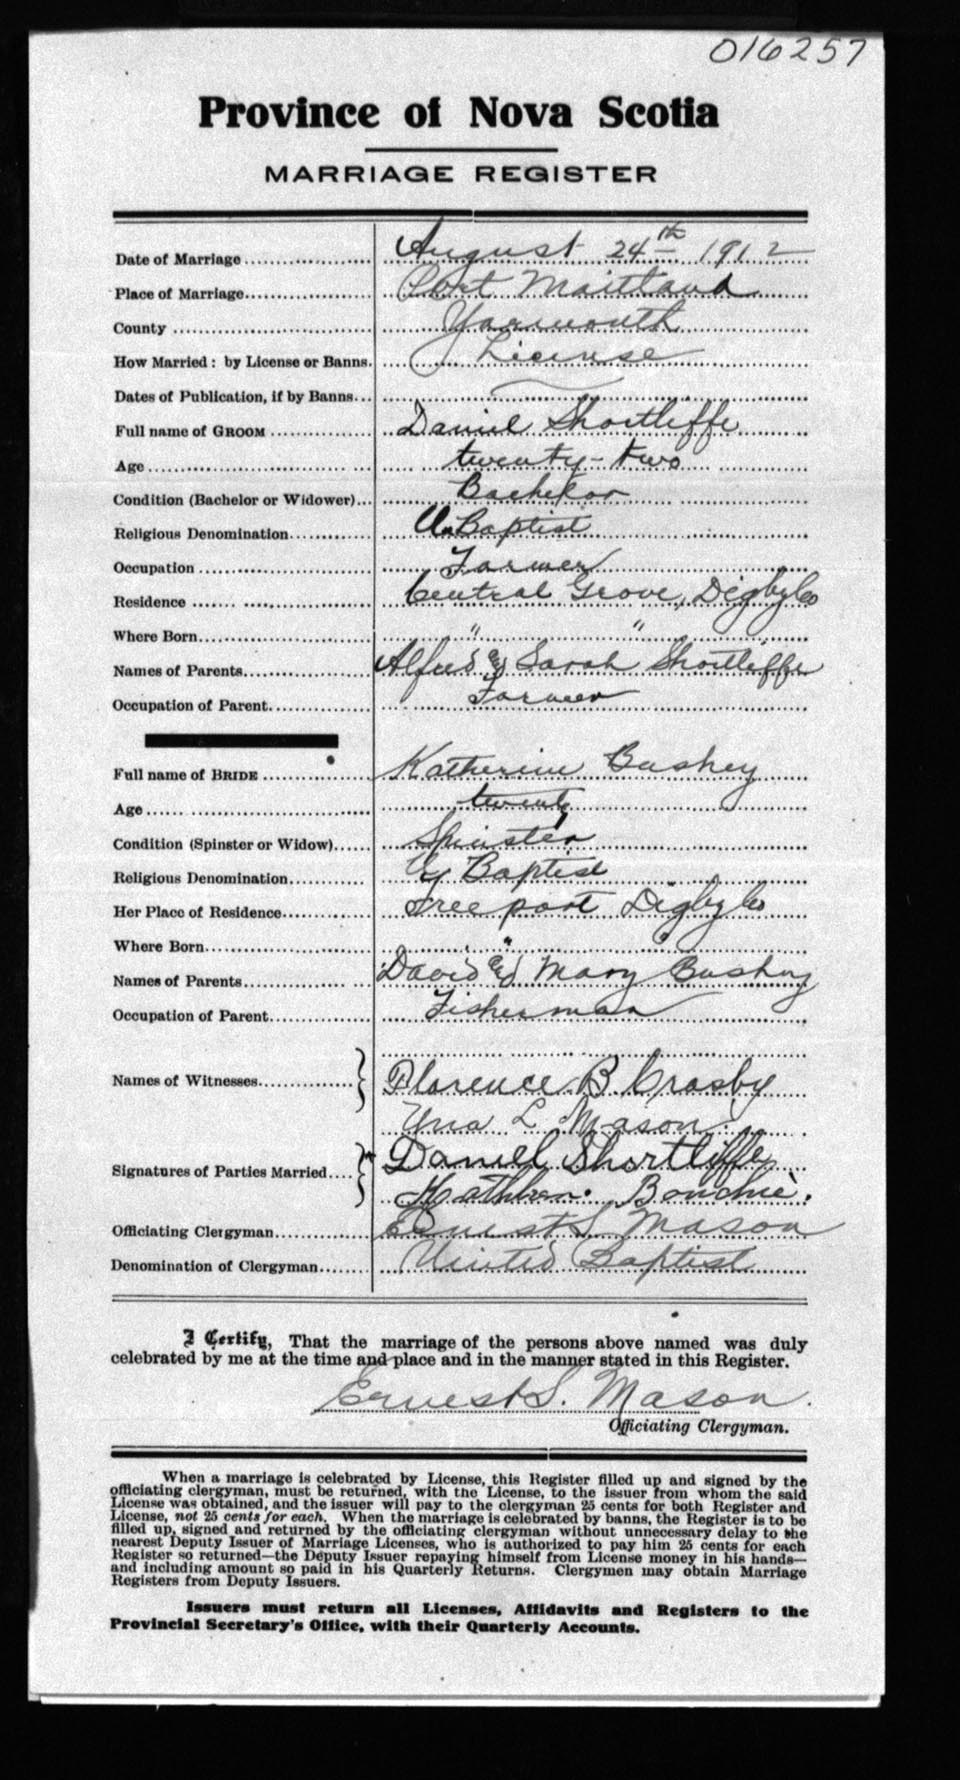 016257
Province of Nova Scotia
MARRIAGE REGISTER
Date of Marriage August 24th 1912
Place of Marriage Port Maitland
County Yarmouth
How Married: by License or Banns. License
Dates of Publication, if by Banns
Full name of GROOM Daniel Shortliffe
Age twenty-two
Condition (Bachelor or Widower) Bachelor
Religious Denomination U. Baptist
Occupation Farmer
Residence Central Grove, Digby Co
Where Born " "
Names of Parents Alfred & Sarah Shortliffe
Occupation of Parent Farmer
Full name of BRIDE Katherine Bushey
Age twenty
Condition (Spinster or Widow) Spinster
Religious Denomination U Baptist
Her Place of Residence Freeport Digby Co
Where Born " "
Names of Parents David & Mary Bushey
Occupation of Parent Fisherman
Names of Witnesses Florence B. Crosby
Una L Mason
Signatures of Parties Married Daniel Shortliffe
Kathleen Bouchie.
Officiating Clergyman Ernest S. Mason
Denomination of Clergyman United Baptist
I Certify, That the marriage of the persons above named was duly
celebrated by me at the time and place and in the manner stated in this Register.
Ernest S. Mason.
Officiating Clergyman.
When a marriage is celebrated by License, this Register filled up and signed by the
officiating clergyman, must be returned, with the License, to the issuer from whom the said
License was obtained, and the issuer will pay to the clergyman 25 cents for both Register and
License, not 25 cents for each. When the marriage is celebrated by banns, the Register is to be
filled up, signed and returned by the officiating clergyman without unnecessary delay to the
nearest Deputy Issuer of Marriage Licenses, who is authorized to pay him 25 cents for each
Register so returned—the Deputy Issuer repaying himself from License money in his hands—
and including amount so paid in his Quarterly Returns. Clergymen may obtain Marriage
Registers from Deputy Issuers.
Issuers must return all Licenses, Affidavits and Registers to the
Provincial Secretary's Office, with their Quarterly Accounts.